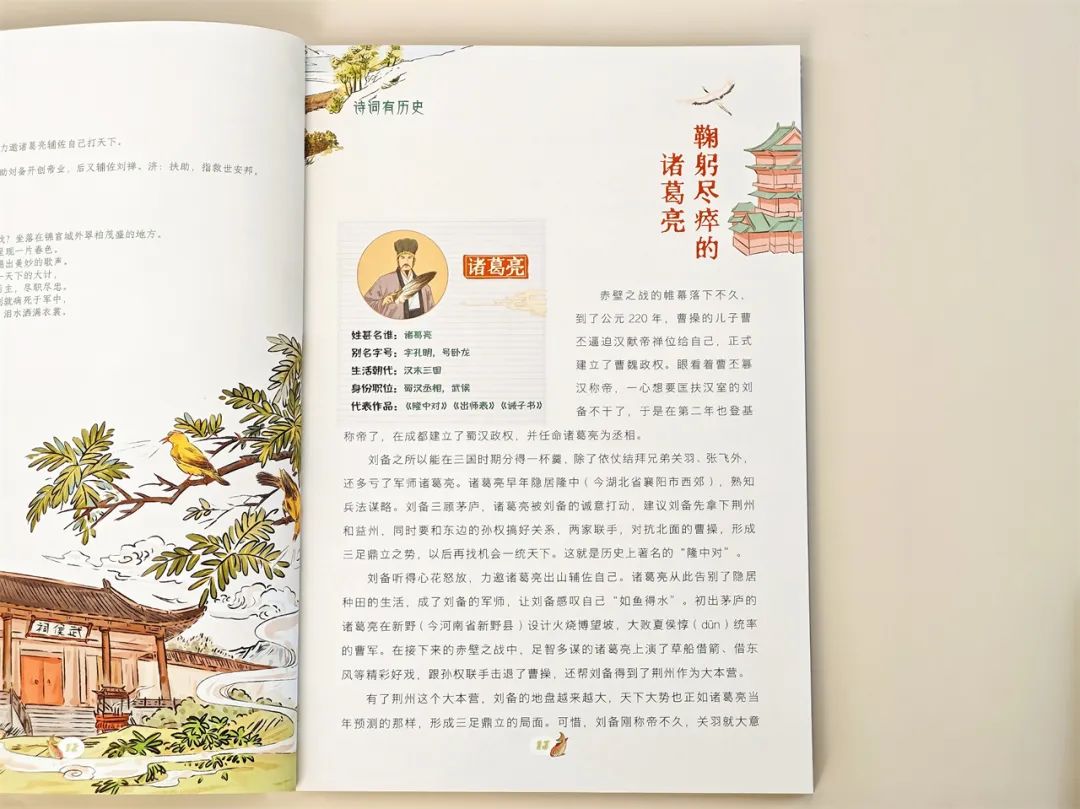 力邀诸葛亮辅佐自己打天下。
助刘备开创帝业，后又辅佐刘禅。济：扶助，指救世安邦。
坐落在锦官城外翠柏茂盛的地方。
呈现一片春色。
唱出美妙的歌声。
天下的大计，
后主，尽职尽忠。
就病死于军中，
泪水洒满衣裳。
武侯祠
12
诗词有历史
鞠躬尽瘁的
诸葛亮
诸葛亮
姓甚名谁：诸葛亮
别名字号：字孔明，号卧龙
生活朝代：汉末三国
身份职位：蜀汉丞相，武侯
代表作品：《隆中对》《出师表》《诫子书》
赤壁之战的帷幕落下不久，
到了公元 220 年，曹操的儿子曹
丕逼迫汉献帝禅位给自己，正式
建立了曹魏政权。眼看着曹丕篡
汉称帝，一心想要匡扶汉室的刘
备不干了，于是在第二年也登基
称帝了，在成都建立了蜀汉政权，并任命诸葛亮为丞相。
刘备之所以能在三国时期分得一杯羹，除了依仗结拜兄弟关羽、张飞外，
还多亏了军师诸葛亮。诸葛亮早年隐居隆中（今湖北省襄阳市西郊），熟知
兵法谋略。刘备三顾茅庐，诸葛亮被刘备的诚意打动，建议刘备先拿下荆州
和益州，同时要和东边的孙权搞好关系，两家联手，对抗北面的曹操，形成
三足鼎立之势，以后再找机会一统天下。这就是历史上著名的“隆中对”。
刘备听得心花怒放，力邀诸葛亮出山辅佐自己。诸葛亮从此告别了隐居
种田的生活，成了刘备的军师，让刘备感叹自己“如鱼得水”。初出茅庐的
诸葛亮在新野（今河南省新野县）设计火烧博望坡，大败夏侯惇（dūn）统率
的曹军。在接下来的赤壁之战中，足智多谋的诸葛亮上演了草船借箭、借东
风等精彩好戏，跟孙权联手击退了曹操，还帮刘备得到了荆州作为大本营。
有了荆州这个大本营，刘备的地盘越来越大，天下大势也正如诸葛亮当
年预测的那样，形成三足鼎立的局面。可惜，刘备刚称帝不久，关羽就大意
13